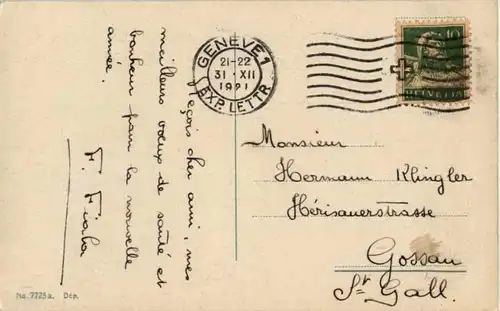 Reçois cher ami, mes
meilleurs voeux de santé et
bonheur pour la nouvelle
année.
F.
No. 7725a. Dép.
GENÈVE·1
21-22
31·XII
1921
EXP. LETTR.
10
HELVETIA
Monsieur
Hermann Klingler
Hérisauerstrasse
Gossau
St Gall.